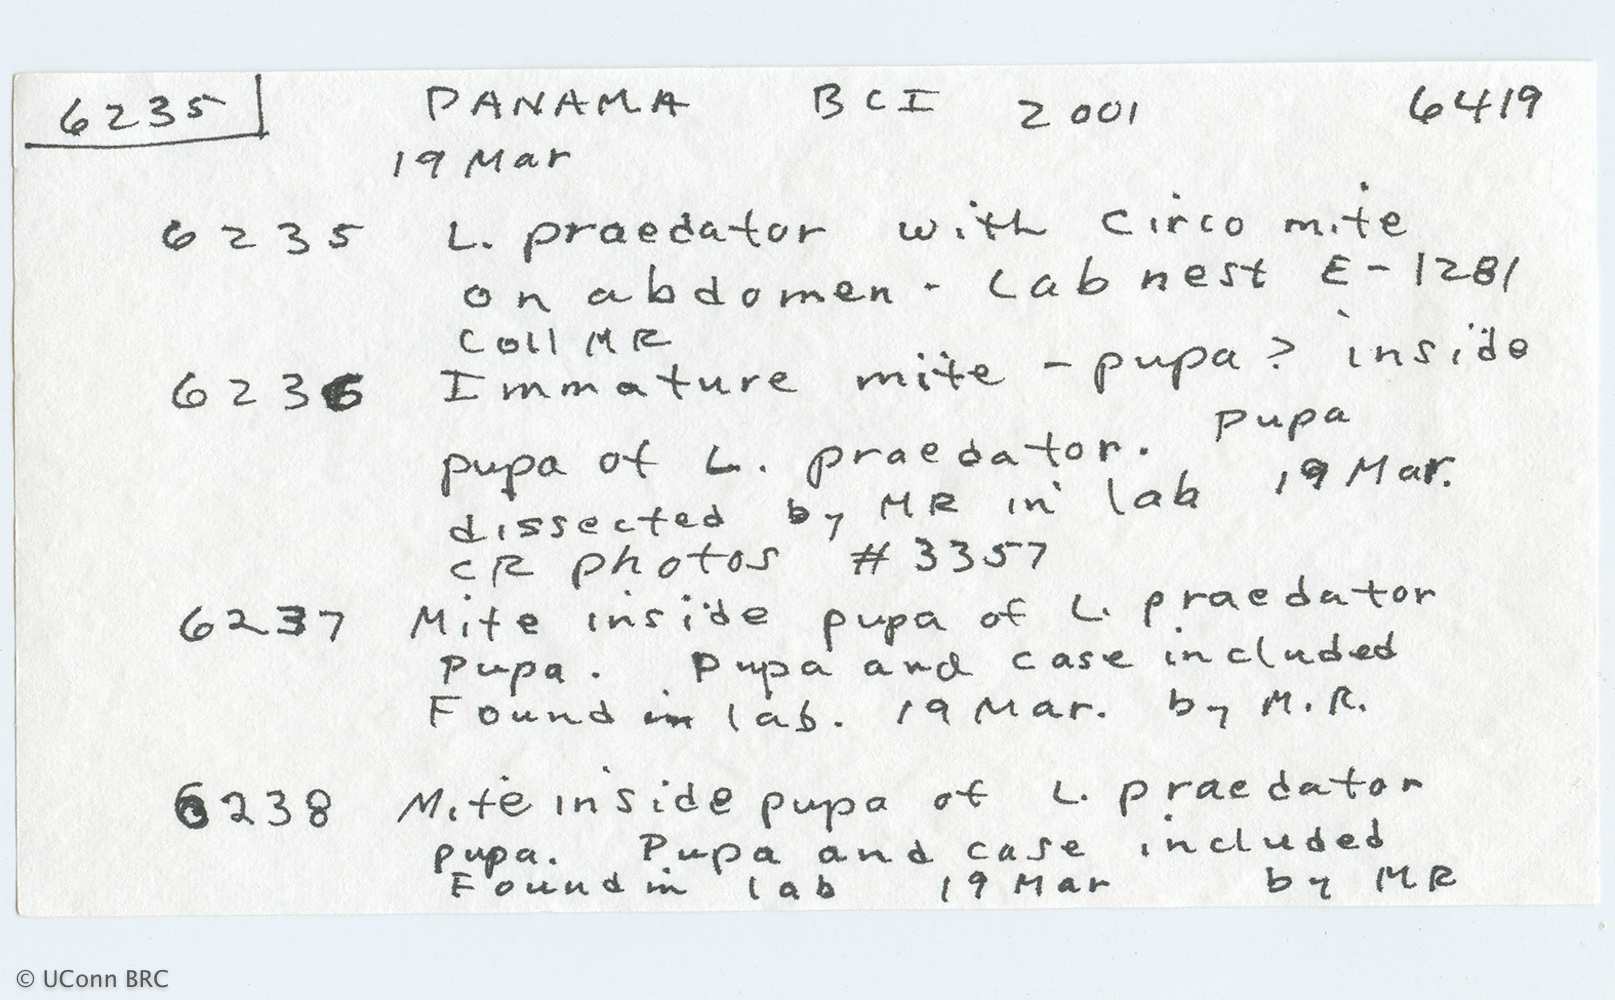 6235 PANAMA BCI 2001 6419
19 Mar
6235 L. praedator with Circo mite
on abdomen - Lab nest E-1281
Coll MR
6236 Immature mite - pupa? inside
pupa of L. praedator. Pupa
dissected by MR in lab 19 Mar.
CR photos #3357
6237 Mite inside pupa of L. praedator
Pupa. Pupa and case included
Found in lab. 19 Mar. by M.R.
6238 Mite inside pupa of L. praedator
pupa. Pupa and case included
Found in lab 19 Mar by MR
© UConn BRC